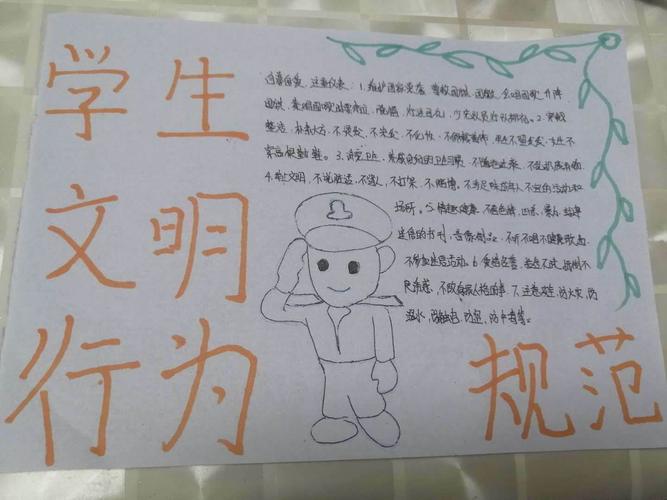 学生
文明
行为
规范
自尊自爱,注重仪表:1.维护国家荣誉,尊敬国旗,国徽,会唱国歌,升降
国旗,奏唱国歌时要肃立,脱帽,行注目礼,少先队员行队礼。2.穿戴
整洁,朴素大方,不烫发,不染发,不化妆,不佩戴首饰,男生不留长发,女生不
穿高跟鞋。3.讲究卫生,养成良好的卫生习惯。不随地吐痰,不乱扔废弃物。
4.举止文明,不说脏话,不骂人,不打架,不赌博。不涉足未成年人不宜的活动和
场所。5.情趣健康,不看色情,凶杀,暴力,封建
迷信的书刊,音像制品,不听不唱不健康歌曲,
不参加迷信活动。6.爱惜名誉,拾金不昧,抵制不
良诱惑,不做有损人格的事。7.注意安全,防火灾,防
溺水,防触电,防盗,防中毒等。